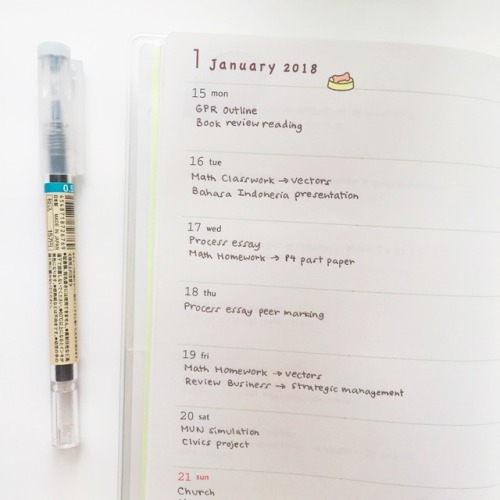 1 January 2018
15 mon
GPR Outline
Book review reading
16 tue
Math Classwork → vectors
Bahasa Indonesia presentation
17 wed
Process essay
Math Homework → P4 past paper
18 thu
Process essay peer marking
19 fri
Math Homework → vectors
Review Business → strategic management
20 sat
MUN simulation
Civics project
21 sun
Church
0.5
MADE IN JAPAN